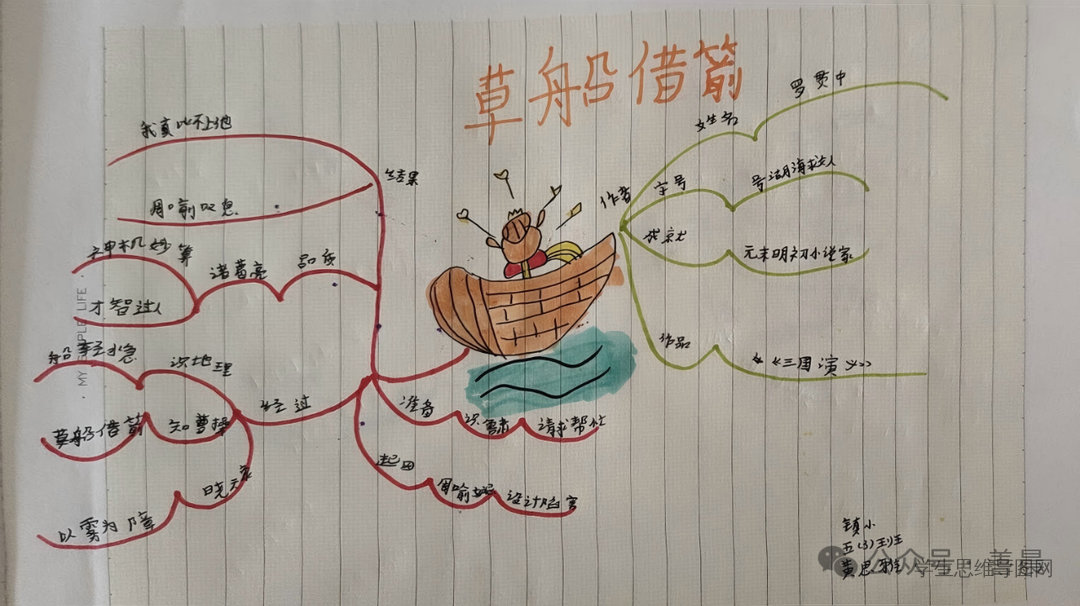 草船借箭
作者
姓名
罗贯中
字号
号湖海散人
成就
元末明初小说家
作品
《三国演义》
结果
我真比不上他
周瑜叹息
品质
诸葛亮
神机妙算
才智过人
经过
识地理
船轻水急
知曹操
草船借箭
晓天象
以雾为障
准备
识鲁肃
请求帮忙
起因
周瑜妒忌
设计陷害
镇小
五(3)班
黄思
公众号·善景
学生思维导图网
MY SIMPLE LIFE